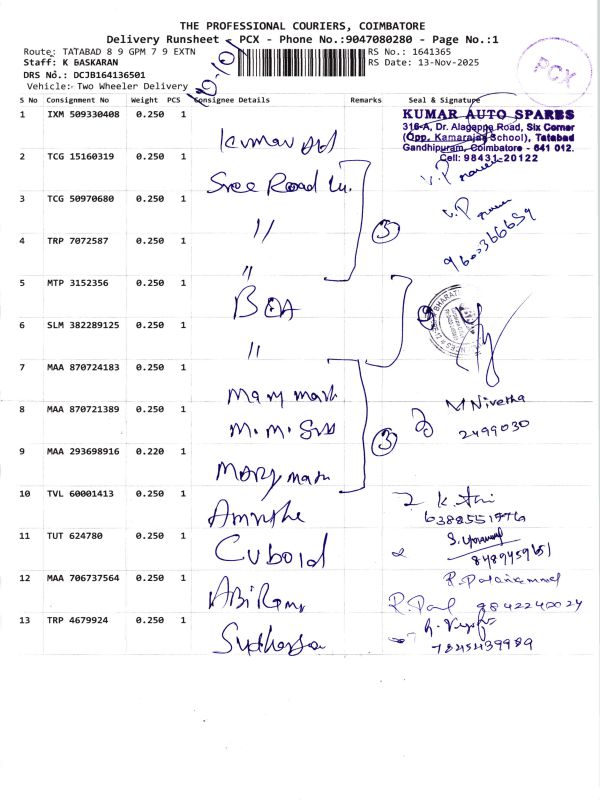 THE PROFESSIONAL COURIERS, COIMBATORE
Delivery Runsheet - PCX - Phone No.:9047080280 - Page No.:1
Route: TATABAD 8 9 GPM 7 9 EXTN
RS No.: 1641365
Staff: K BASKARAN
RS Date: 13-Nov-2025
DRS No.: DCJB164136501
Vehicle: Two Wheeler Delivery
PCX
S No Consignment No Weight PCS Consignee Details Remarks Seal & Signature
1 IXM 509330408 0.250 1
KUMAR AUTO SPARES
316-A, Dr. Alagappa Road, Six Corner
(Opp. Kamarajar School), Tatabad
Gandhipuram, Coimbatore - 641 012.
Cell: 98431-20122
2 TCG 15160319 0.250 1 Sree Road
3 TCG 50970680 0.250 1 "
4 TRP 7072587 0.250 1 "
3
9600366659
5 MTP 3152356 0.250 1
6 SLM 382289125 0.250 1 "
7 MAA 870724183 0.250 1 Mary
8 MAA 870721389 0.250 1 M.M.
9 MAA 293698916 0.220 1 Mary
3
M Nivetha
2499030
10 TVL 60001413 0.250 1
6388551976
11 TUT 624780 0.250 1 Cuboid
12 MAA 706737564 0.250 1
9842240024
13 TRP 4679924 0.250 1